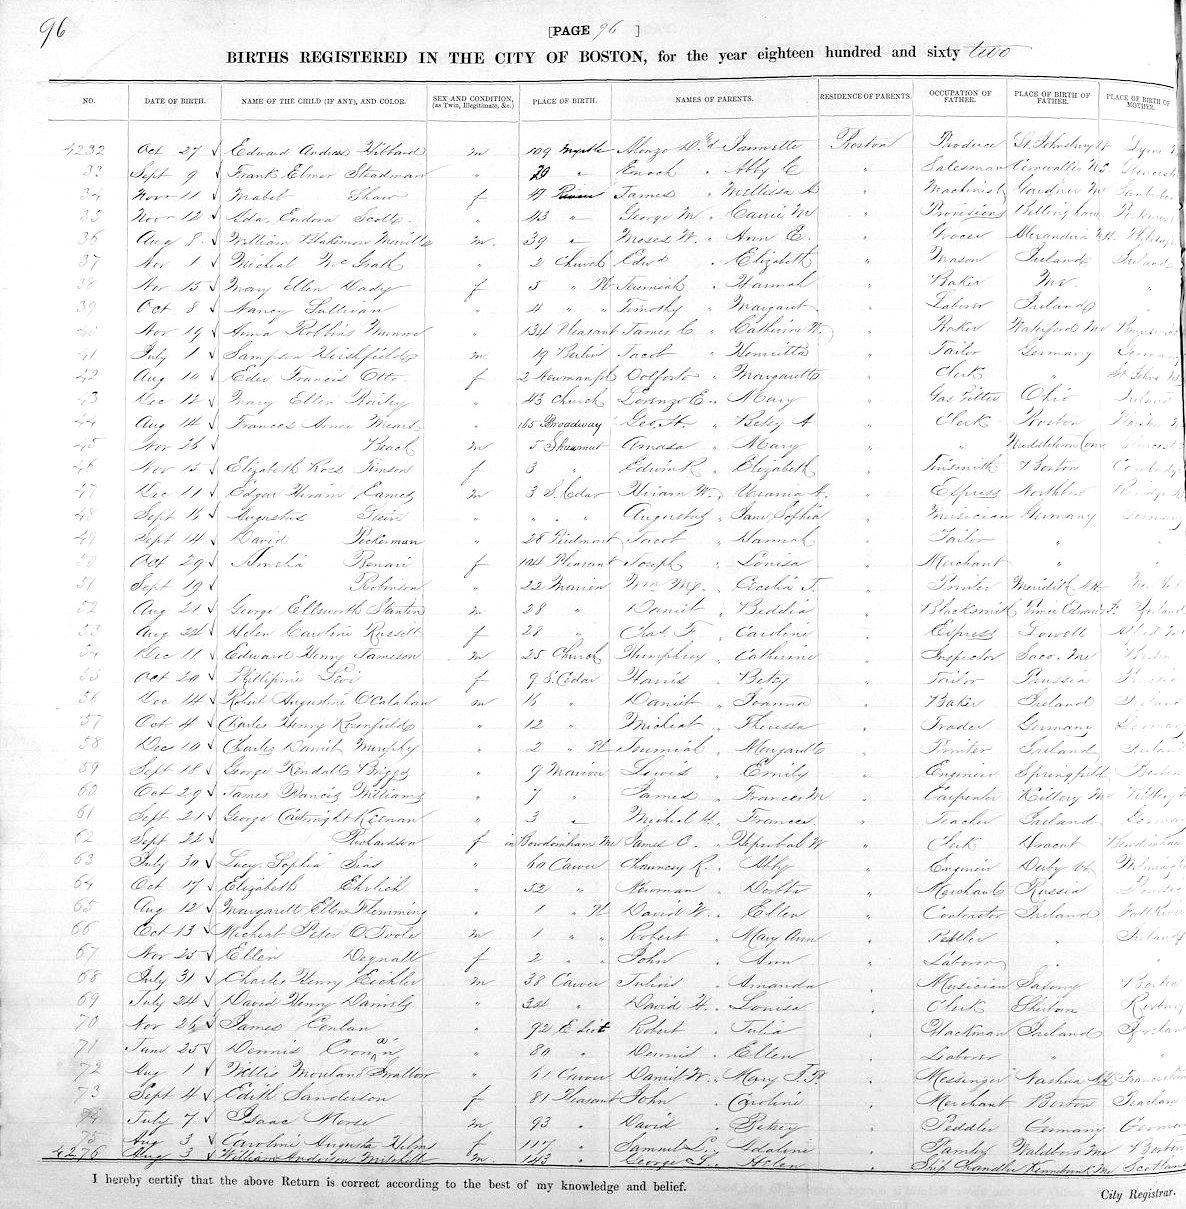 96
[PAGE 96 ]
BIRTHS REGISTERED IN THE CITY OF BOSTON, for the year eighteen hundred and sixty two
NO. DATE OF BIRTH. NAME OF THE CHILD (IF ANY), AND COLOR. SEX AND CONDITION, (as Twin, Illegitimate, &c.) PLACE OF BIRTH. NAMES OF PARENTS. RESIDENCE OF PARENTS. OCCUPATION OF FATHER. PLACE OF BIRTH OF FATHER. PLACE OF BIRTH OF MOTHER.
4232 Oct 27 Edward Andrew Hibbard m 109 Myrtle Alonzo D. & Jannette Boston Produce St. Johnsbury Vt Lyme
33 Sept 9 Frank Elmer Steadman " 79 " Enoch " Abby C " Salesman Cornwallis N.S.
34 Nov 11 Mabel Shaw f 47 River James " Mellissa A " Machinist Gardner Me
35 Nov 12 Ada Eudora Scott " 43 " George M " Carrie M " Provisions Bellingham
36 Aug 8 William Blakemore Merrill m. 39 " Moses W. " Ann E. " Grocer Alexandria N.H.
37 Nov 1 Micheal McGrath " 2 Church Edwd " Elizabeth " Mason Ireland Ireland
38 Nov 15 Mary Ellen Dady f 5 " Pl Jeremiah " Hannah " Baker Me "
39 Oct 8 Nancy Sullivan " 4 " " Timothy " Margaret " Laborer Ireland "
40 Nov 19 Anna Robbins Munroe " 134 Pleasant James C " Catherine W. " Baker Waterford Me
41 July 1 Sampson Hirshfield m 19 Berlin Jacob " Henrietta " Tailor Germany Germany
42 Aug 10 Francis Otto f 2 Newman pl " Margarett " Clerk " St Johns
43 Dec 12 Mary Ellen Bailey " 43 Church Lorenzo E. " Mary " Gas Fitter Ohio Ireland
44 Aug 14 Frances Anna Mears " 165 Broadway Geo. H. " Betsy A " Clerk Boston
45 Nov 26 Beach m 5 Shawmut Amasa " Mary " " Middletown Conn
46 Nov 15 Elizabeth Ross Stinson f 3 " Edwin R " Elizabeth " Tinsmith Boston Cambridge
47 Dec 11 Edgar Hiram Eames m 3 S. Cedar Hiram W. " Urania A. " Express Northboro
48 Sept 16 Augustus Stein " " " Augustus " Jane Sophia " Musician Germany Germany
49 Sept 14 David Peckerman " 28 Piedmont Jacob " Hannah " Tailor " "
50 Oct 29 Amelia f 104 Pleasant Joseph " Louisa " Merchant " "
51 Sept 19 Robinson " 22 Marion Wm " Cecelia T. " Printer Meridith N.H. New York
52 Aug 21 George Ellsworth Stanton m 28 " Daniel " Beddia " Blacksmith Prince Edwards I. Ireland
53 Aug 24 Helen Caroline Russell f 28 " Chas F. " Caroline " Express Lowell
54 Dec 11 Edward Henry Jameson m 25 Church Humphrey " Catherine " Inspector Saco. Me Boston
55 Oct 20 Phillipine Levi f 9 S. Cedar Harris " Betsy " Tailor Prussia Prussia
56 Dec 14 Robert Augustine O'Calahan m 16 " Daniel " Joanna " Baker Ireland Ireland
57 Oct 4 Charles Henry " 12 " Micheal " Theressa " Trader Germany Germany
58 Dec 10 Charles Daniel Murphy " 2 " Pl Jeremiah " Margarett " Printer Ireland Ireland
59 Sept 18 George Kendall Briggs " 9 Marion Lewis " Emily " Engineer Springfield Boston
60 Oct 29 James Francis Williams " 7 " James " Frances M " Carpenter Kittery Me Kittery
61 Sept 21 George Cartwright Keenan " 3 " Micheal H. " Frances " Teacher Ireland
62 Sept 22 Richardson f in Bowdoinham Me James O. " Hepsebah W " Clerk Dracut Bowdoinham
63 July 30 Lucy Sophia Sias " 60 Carver Chauncey R. " Abby " Engineer Derby Vt
64 Oct 17 Elizabeth Ehrlich " 52 " Newman " " Merchant Russia Prussia
65 Aug 12 Margarett Ellen Flemming " 1 " Pl David W. " Ellen " Contractor Ireland Fall River
66 Oct 13 Micheal Peter O'Toole m 1 " " Robert " Mary Ann " Pedler " Ireland
67 Nov 25 Ellen Degnall f 2 " " John " Ann " Laborer " "
68 July 31 Charles Henry Eichler m 38 Carver Julius " Amanda " Musician Saxony Boston
69 July 24 David Henry Daniels " 34 " David H. " Louisa " Clerk Sherborn Roxbury
70 Nov 26 James Conlan " 92 Eliot Robert " Julia " Hackman Ireland
71 June 25 Dennis Cronan " 80 " Dennis " Ellen " Laborer " "
72 Aug 1 Willis Moreland Swallow " 61 Carver Daniel W. " Mary J. P. " Messenger Nashua NH Francestown
73 Sept 4 Edith Sanderson f 81 Pleasant John " Caroline " Merchant Boston Peacham
74 July 7 Isaac Morse m 93 " David " Betsey " Peddler Germany Germany
75 Aug 3 Caroline Augusta f 117 " Samuel L. " " Waldoboro Me Boston
4276 Aug 3 William Anderson Mitchell m. 143 " George T. " Helen " Ship Chandler Kennebunk Me Scotland
I hereby certify that the above Return is correct according to the best of my knowledge and belief.
City Registrar.